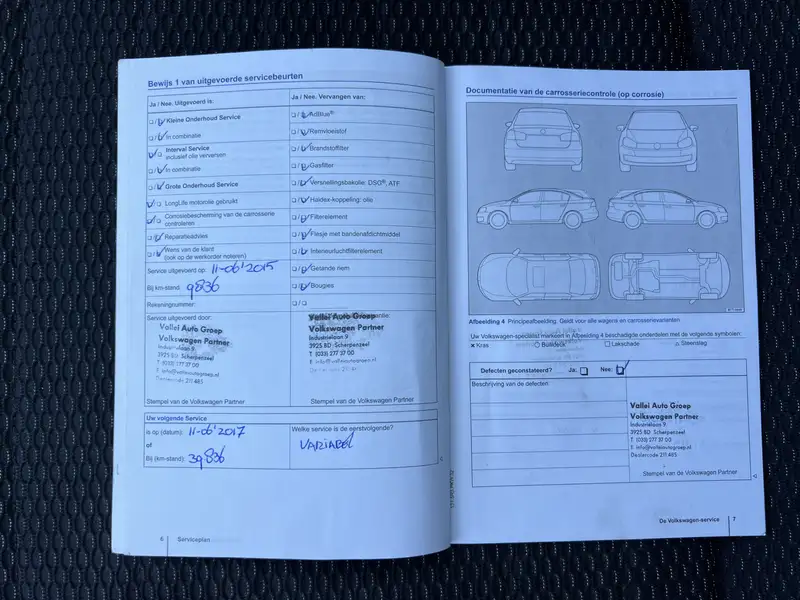 Bewijs 1 van uitgevoerde servicebeurten
Ja / Nee. Uitgevoerd is:
Kleine Onderhoud Service
In combinatie
Interval Service
inclusief olie verversen
In combinatie
Grote Onderhoud Service
LongLife motorolie gebruikt
Corrosiebescherming van de carrosserie
controleren
Reparatieadvies
Wens van de klant
(ook op de werkorder noteren)
Service uitgevoerd op: 11-06'2015
Bij km-stand: 9836
Rekeningnummer:
Service uitgevoerd door:
Vallei Auto Groep
Volkswagen Partner
Industrielaan 9
3925 BD Scherpenzeel
T (033) 277 37 00
E info@valleiautogroep.nl
Dealercode 211 485
Stempel van de Volkswagen Partner
Ja / Nee. Vervangen van:
AdBlue®
Remvloeistof
Brandstoffilter
Gasfilter
Versnellingsbakolie: DSG®, ATF
Haldex-koppeling: olie
Filterelement
Flesje met bandenafdichtmiddel
Interieurluchtfilterelement
Getande riem
Bougies
Vallei Auto Groep
Volkswagen Partner
Industrielaan 9
3925 BD Scherpenzeel
T (033) 277 37 00
E info@valleiautogroep.nl
Dealercode 211 485
Stempel van de Volkswagen Partner
Uw volgende Service
is op (datum): 11-06'2017
of
Bij (km-stand): 39836
Welke service is de eerstvolgende?
VARIABEL
6 Serviceplan
Documentatie van de carrosseriecontrole (op corrosie)
Afbeelding 4 Principeafbeelding: Geldt voor alle wagens en carrosserievarianten
Uw Volkswagen-specialist markeert in Afbeelding 4 beschadigde onderdelen met de volgende symbolen:
Kras
Buil/deuk
Lakschade
Steenslag
Defecten geconstateerd? Ja: Nee:
Beschrijving van de defecten:
Vallei Auto Groep
Volkswagen Partner
Industrielaan 9
3925 BD Scherpenzeel
T. (033) 277 37 00
E. info@valleiautogroep.nl
Dealercode 211 485
Stempel van de Volkswagen Partner
De Volkswagen-service 7